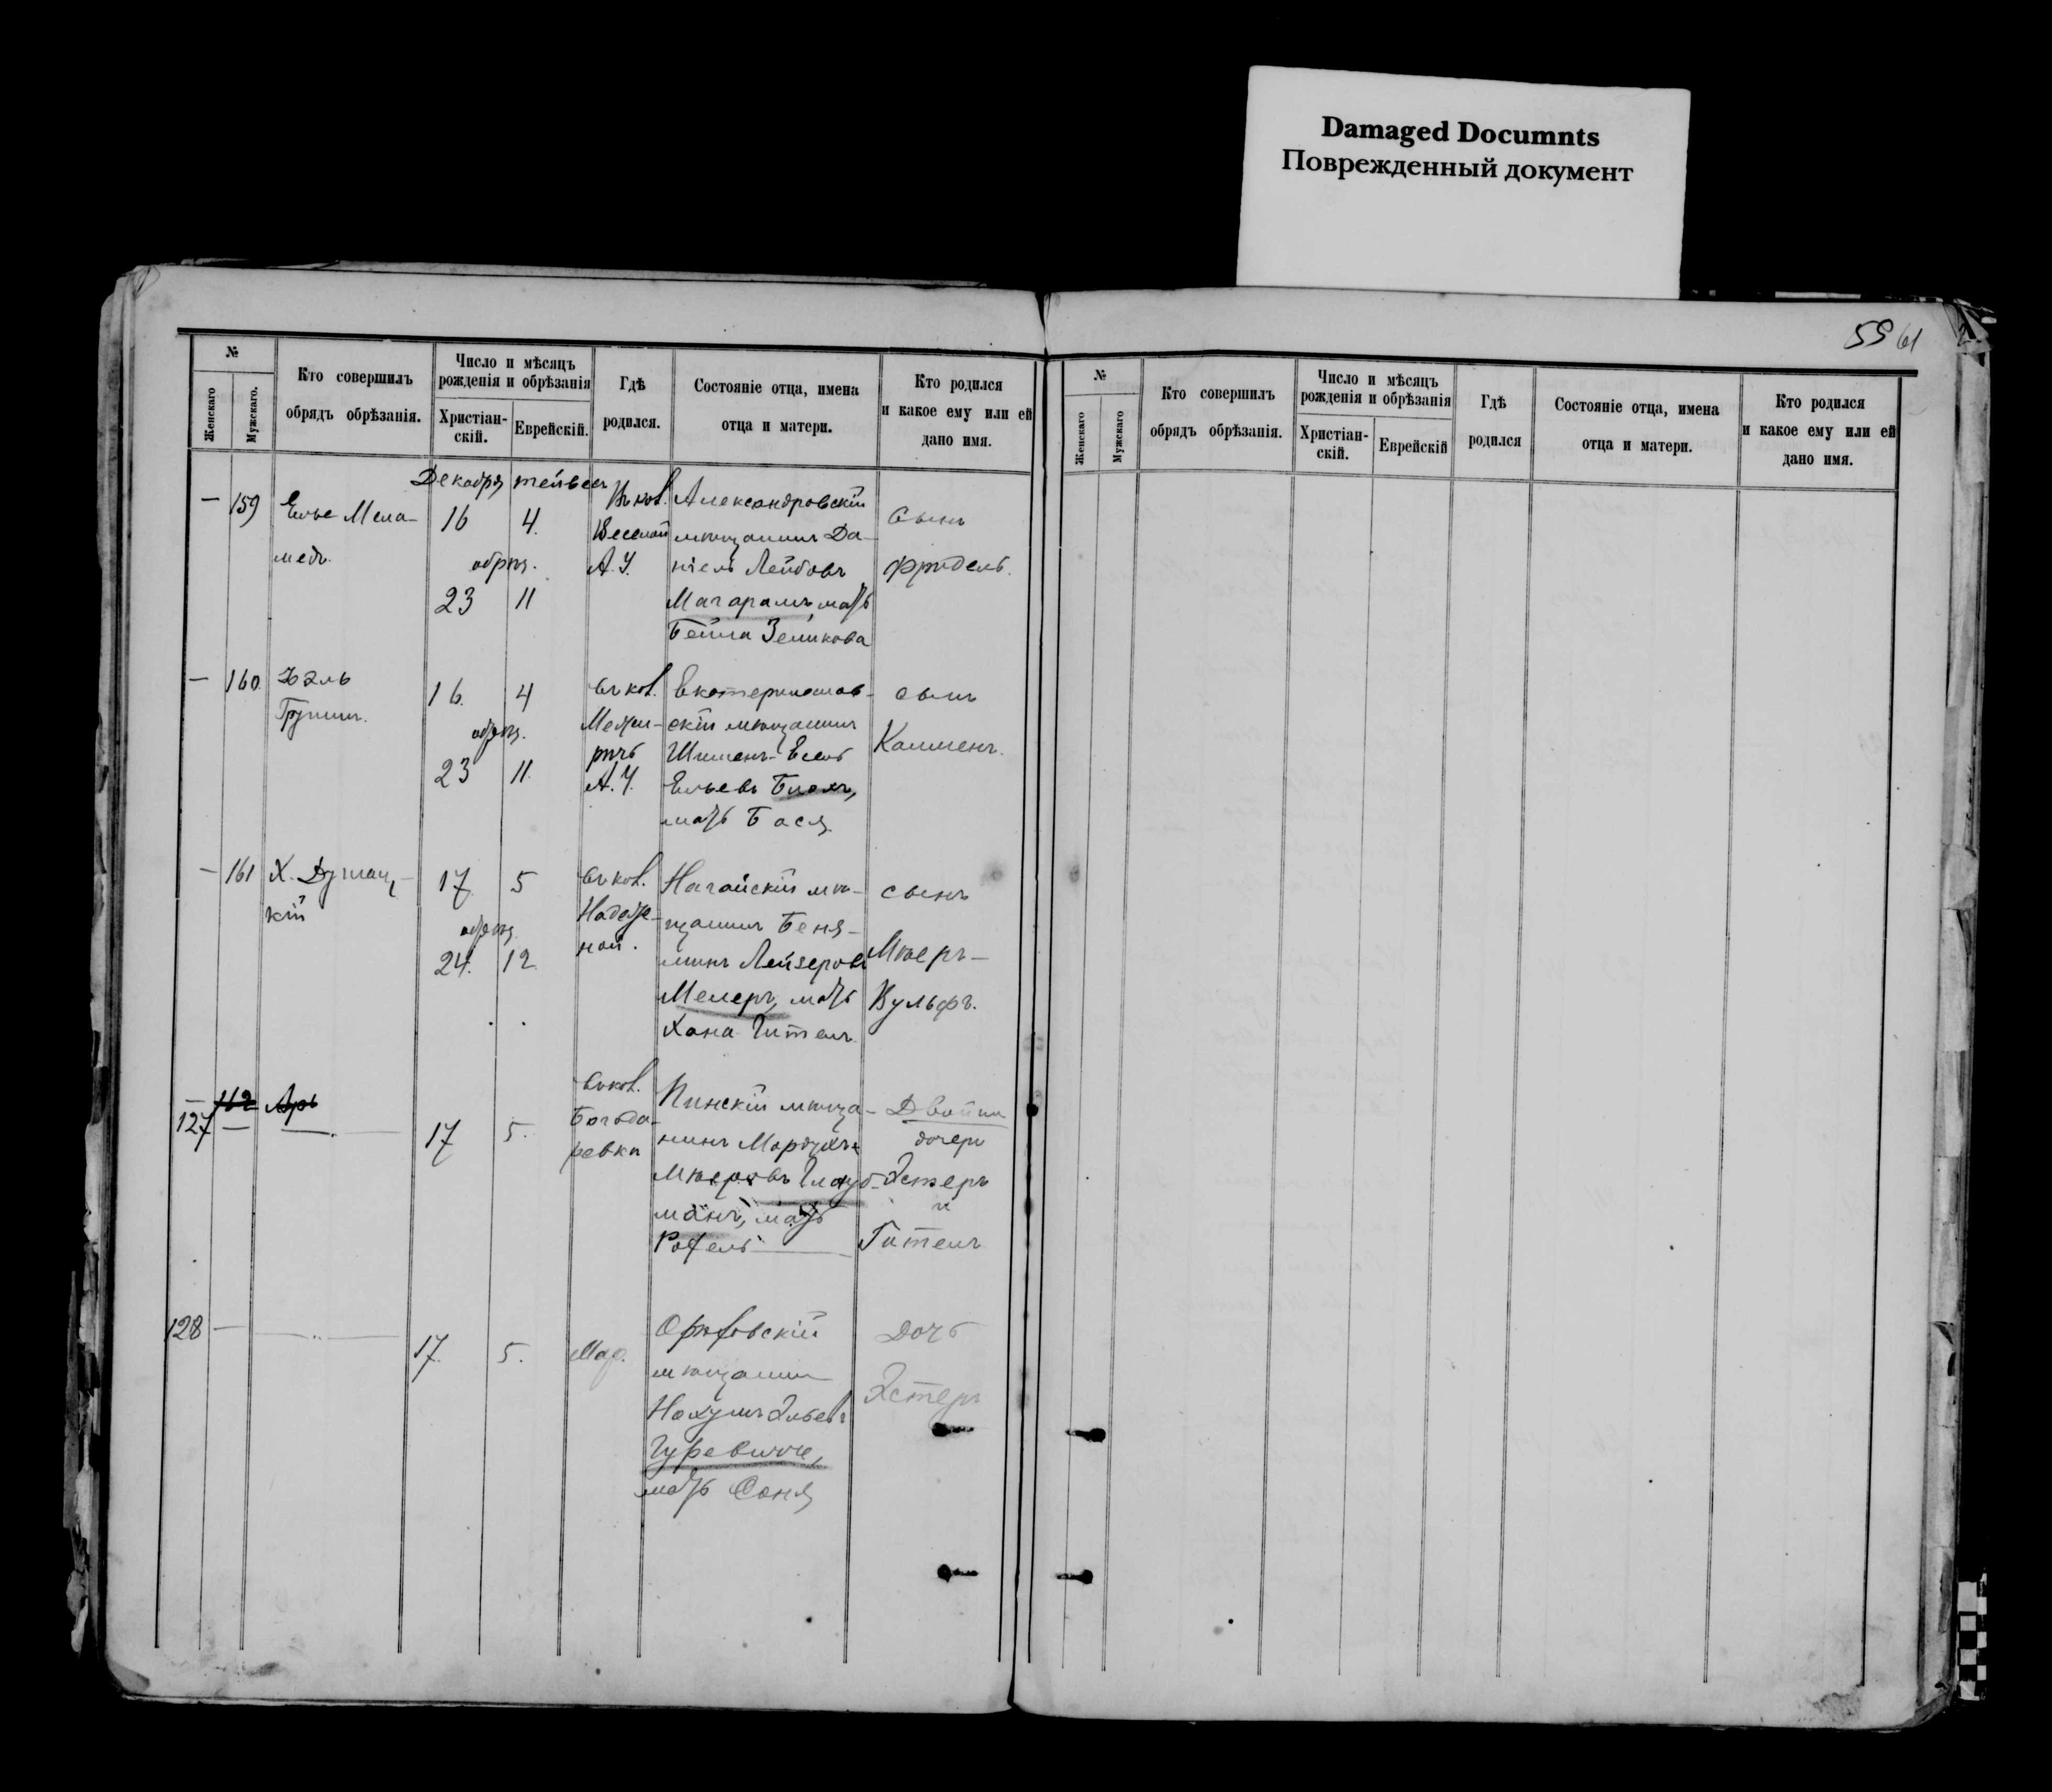 Damaged Documnts
Поврежденный документ
55 61
№
Женскаго
Мужскаго.
Кто совершилъ
обрядъ обрѣзанія.
Число и мѣсяцъ
рожденія и обрѣзанія
Христіан-
скій.
Еврейскій.
Гдѣ
родился.
Состояніе отца, имена
отца и матери.
Кто родился
и какое ему или ей
дано имя.
Декабря тейвесъ
— 159
Елье Мела-
медъ.
16 4.
обрѣз.
23 11
Въ кол.
Веселой
А.У.
Александровскій
мѣщанинъ Да-
ніель Лейбовъ
Магарамъ, мать
Бейла Зеликова
Сынъ
Фридель.
— 160.
16. 4
обрѣз.
23 11.
въ кол.
Межи-
ричъ
А.У.
Екатеринослав-
скій мѣщанинъ
Шименъ-Есель
Ельевъ
мать Бася.
сынъ
Калменъ.
— 161
Х. Душац-
кій
17. 5
обрѣз.
24. 12.
въ кол.
Надеж-
ной.
Ногайскій мѣ-
щанинъ Беня-
минъ Лейзеровъ
Мелеръ, мать
Хана Гитель
сынъ
Мѣеръ-
Вульфъ.
127 162 Аръ
17 5.
въ кол.
Богода-
ревки
Пинскій мѣща-
нинъ Мордухъ
Мѣеровъ Глауб-
манъ, мать
Рохель
Двойни
дочери
Эстеръ
и
Гитель
128 —
17. 5.
Мар.
Орѣховскій
мѣщанинъ
Нохумъ Эльевъ
Гуревичъ,
мать Соня
дочь
Эстеръ
№
Женскаго
Мужскаго
Кто совершилъ
обрядъ обрѣзанія.
Число и мѣсяцъ
рожденія и обрѣзанія
Христіан-
скій.
Еврейскій
Гдѣ
родился
Состояніе отца, имена
отца и матери.
Кто родился
и какое ему или ей
дано имя.